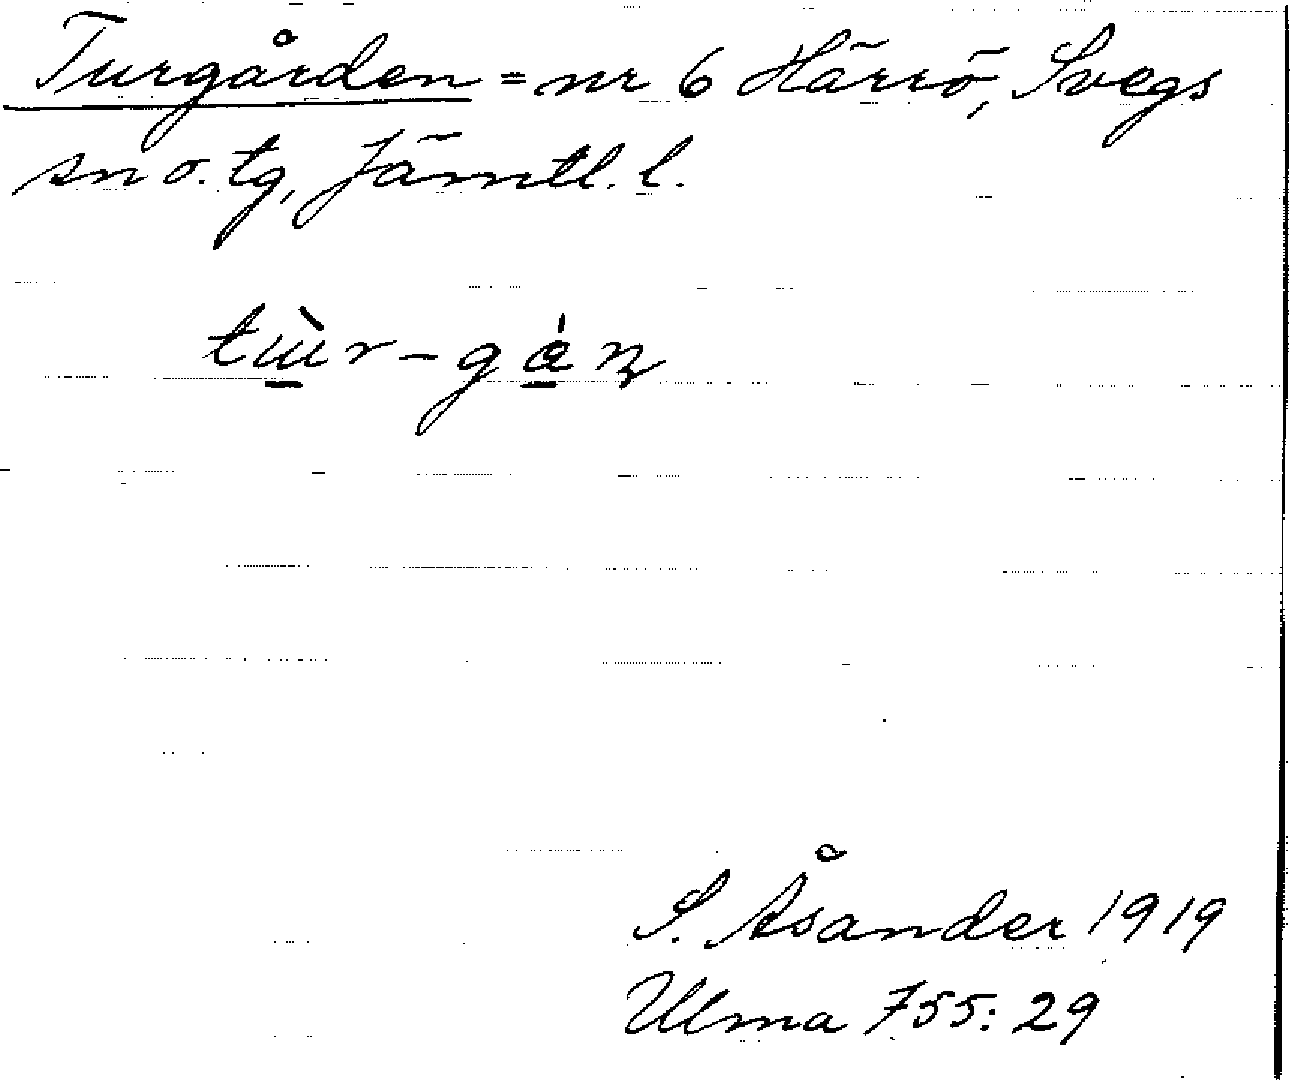 Turgården = nr 6 Härrö, Svegs
sn o. tg, Jämtl. l.
tɯ̀r-gáɳ
S. Åsander 1919
Ulma 755:29